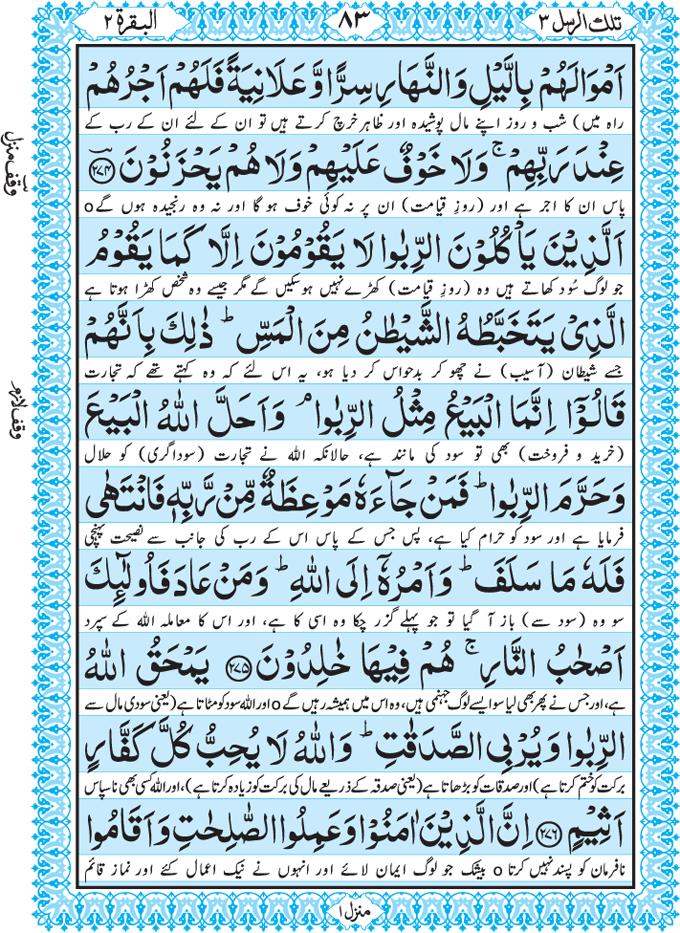 تلك الرسل ٣
٨٣
البقرة ٢
اَمْوَالَهُمْ بِالَّيْلِ وَالنَّهَارِ سِرًّا وَّعَلَانِيَةً فَلَهُمْ اَجْرُهُمْ
راہ میں) شب و روز اپنے مال پوشیدہ اور ظاہر خرچ کرتے ہیں تو ان کے لئے ان کے رب کے
عِنْدَ رَبِّهِمْ ۚ وَلَا خَوْفٌ عَلَيْهِمْ وَلَا هُمْ يَحْزَنُوْنَ ﴿٢٧٤﴾
پاس ان کا اجر ہے اور (روزِ قیامت) ان پر نہ کوئی خوف ہو گا اور نہ وہ رنجیدہ ہوں گے o
وقف منزل
اَلَّذِيْنَ يَاْكُلُوْنَ الرِّبٰوا لَا يَقُوْمُوْنَ اِلَّا كَمَا يَقُوْمُ
جو لوگ سُود کھاتے ہیں وہ (روزِ قیامت) کھڑے نہیں ہو سکیں گے مگر جیسے وہ شخص کھڑا ہوتا ہے
الَّذِيْ يَتَخَبَّطُهُ الشَّيْطٰنُ مِنَ الْمَسِّ ؕ ذٰلِكَ بِاَنَّهُمْ
جسے شیطان (آسیب) نے چھو کر بدحواس کر دیا ہو، یہ اس لئے کہ وہ کہتے تھے کہ تجارت
قَالُوْٓا اِنَّمَا الْبَيْعُ مِثْلُ الرِّبٰوا ۘ وَاَحَلَّ اللّٰهُ الْبَيْعَ
(خرید و فروخت) بھی تو سود کی مانند ہے، حالانکہ اللہ نے تجارت (سوداگری) کو حلال
وقف لازم
وَحَرَّمَ الرِّبٰوا ؕ فَمَنْ جَآءَهٗ مَوْعِظَةٌ مِّنْ رَّبِّهٖ فَانْتَهٰى
فرمایا ہے اور سود کو حرام کیا ہے، پس جس کے پاس اس کے رب کی جانب سے نصیحت پہنچی
فَلَهٗ مَا سَلَفَ ؕ وَاَمْرُهٗٓ اِلَى اللّٰهِ ؕ وَمَنْ عَادَ فَاُولٰٓئِكَ
سو وہ (سود سے) باز آ گیا تو جو پہلے گزر چکا وہ اسی کا ہے، اور اس کا معاملہ اللہ کے سپرد
اَصْحٰبُ النَّارِ ۚ هُمْ فِيْهَا خٰلِدُوْنَ ﴿٢٧٥﴾ يَمْحَقُ اللّٰهُ
ہے، اور جس نے پھر بھی لیا سو ایسے لوگ جہنمی ہیں، وہ اس میں ہمیشہ رہیں گے o اور اللہ سود کو مٹاتا ہے (یعنی سودی مال سے
الرِّبٰوا وَيُرْبِى الصَّدَقٰتِ ؕ وَاللّٰهُ لَا يُحِبُّ كُلَّ كَفَّارٍ
برکت کو ختم کرتا ہے) اور صدقات کو بڑھاتا ہے (یعنی صدقہ کے ذریعے مال کی برکت کو زیادہ کرتا ہے)، اور اللہ کسی بھی ناسپاس
اَثِيْمٍ ﴿٢٧٦﴾ اِنَّ الَّذِيْنَ اٰمَنُوْا وَعَمِلُوا الصّٰلِحٰتِ وَاَقَامُوا
نافرمان کو پسند نہیں کرتا o بیشک جو لوگ ایمان لائے اور انہوں نے نیک اعمال کئے اور نماز قائم
منزل ١